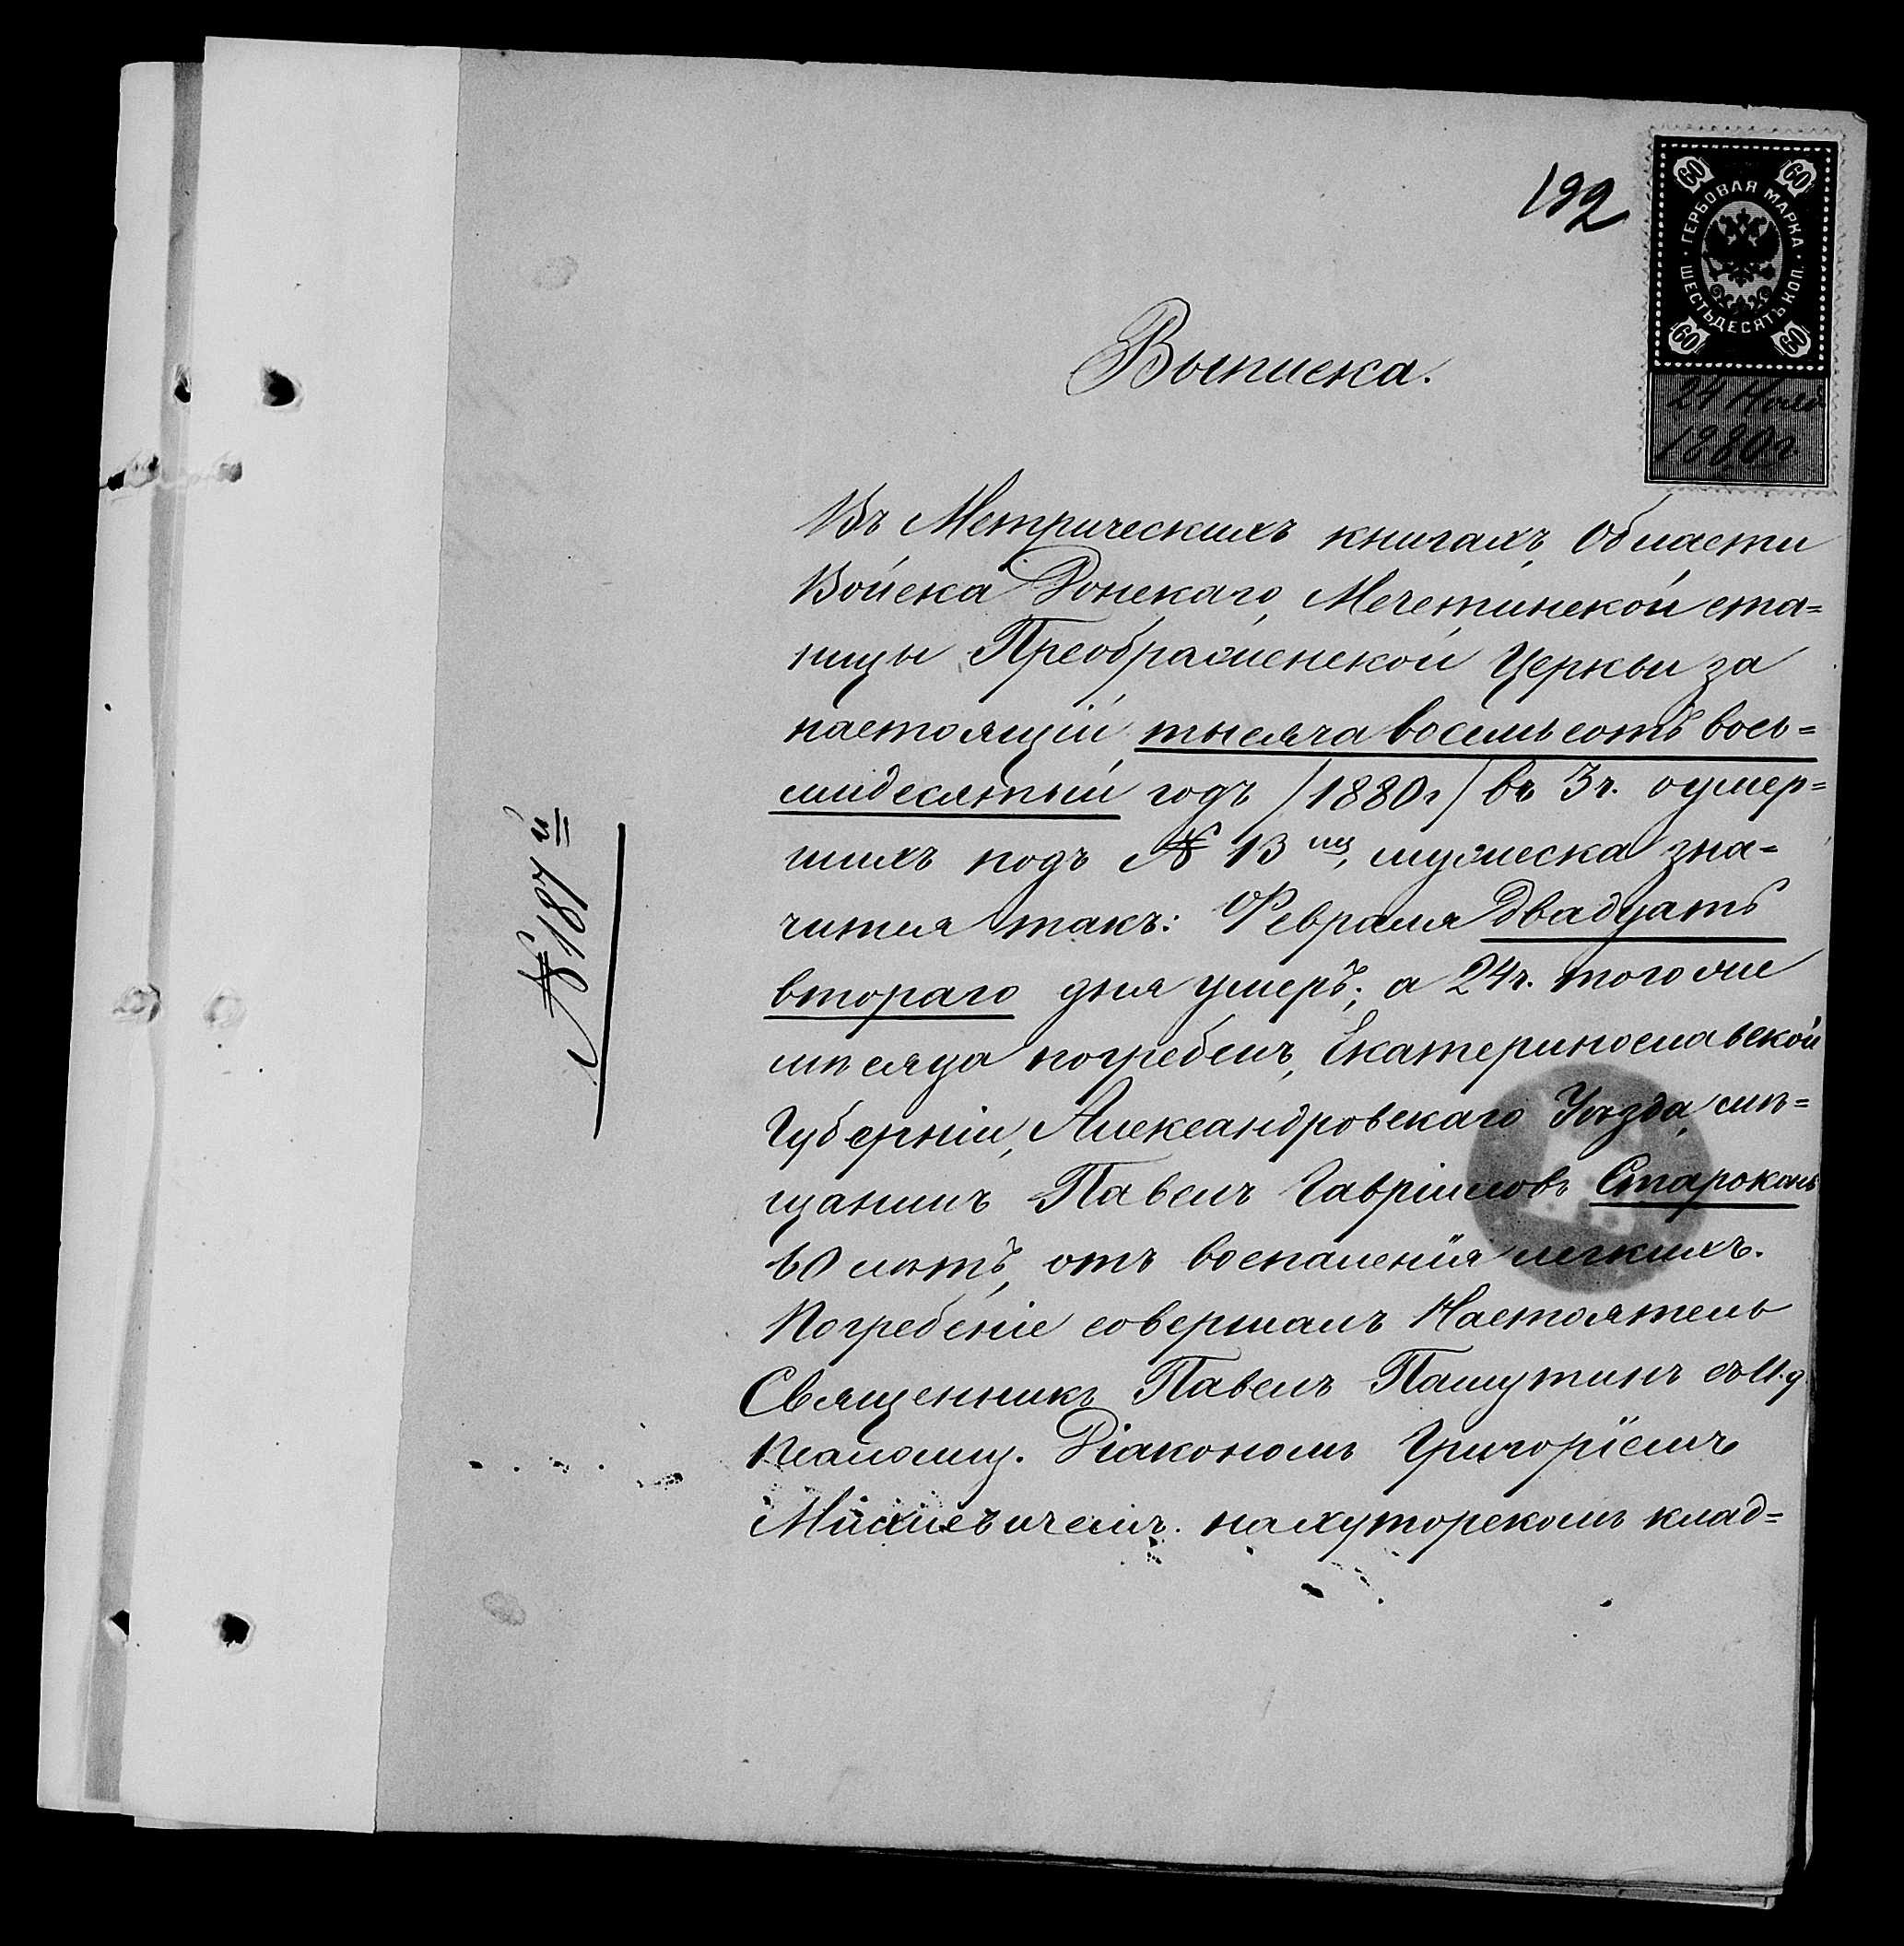 192
ГЕРБОВАЯ МАРКА
ШЕСТЬДЕСЯТЪ КОП.
60 60
60 60
24 Нояб
1880 г.
Выписка.
Въ Метрическихъ книгахъ, Области
Войска Донскаго, Мечетинской ста=
ницы Преображенской Церкви за
настоящій тысяча восемьсотъ вось=
мидесятый годъ /1880 г/ въ 3 ч. о умер=
шихъ подъ № 13 мужеска зна=
чится такъ: Февраля двадцать
втораго дня умеръ; а 24 ч. того же
мѣсяца погребенъ, Екатеринославской
Губерніи, Александровскаго Уѣзда, мѣ=
щанинъ Павелъ Гавріиловъ Старокань
60 лѣтъ, отъ воспаленія легкихъ.
Погребеніе совершалъ Настоятель
Священникъ Павелъ Пашутинъ съ И.д
Псаломщ. Діакономъ Григоріемъ
на хуторскомъ клад=
№ 187 й